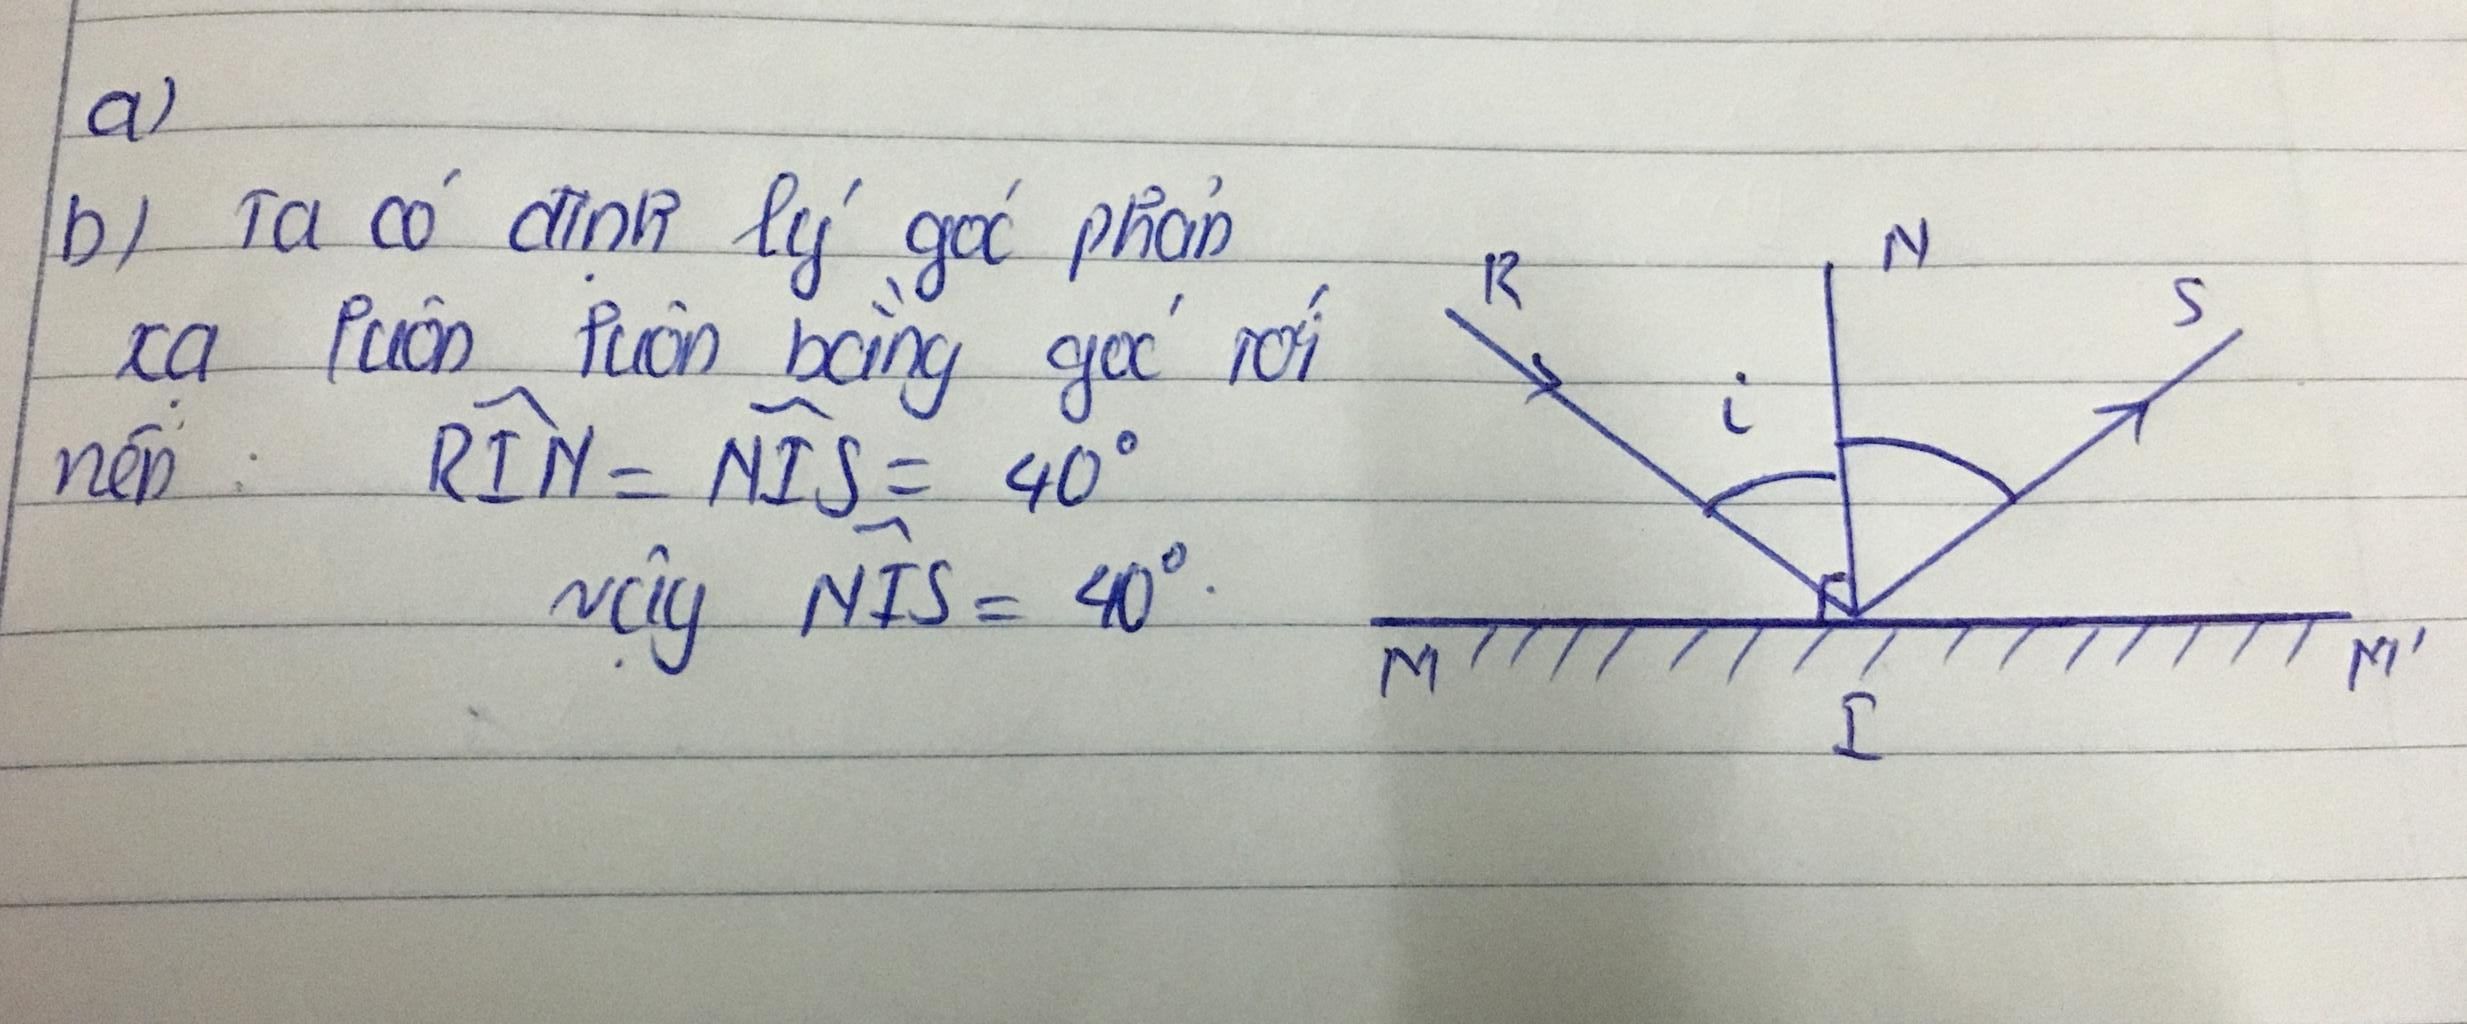 a)
b) Ta có định lý góc phản
xạ luôn luôn bằng góc tới
nên : RIN̂ = NIŜ = 40°
vậy NIŜ = 40°.
R
N
S
i
M
M'
I